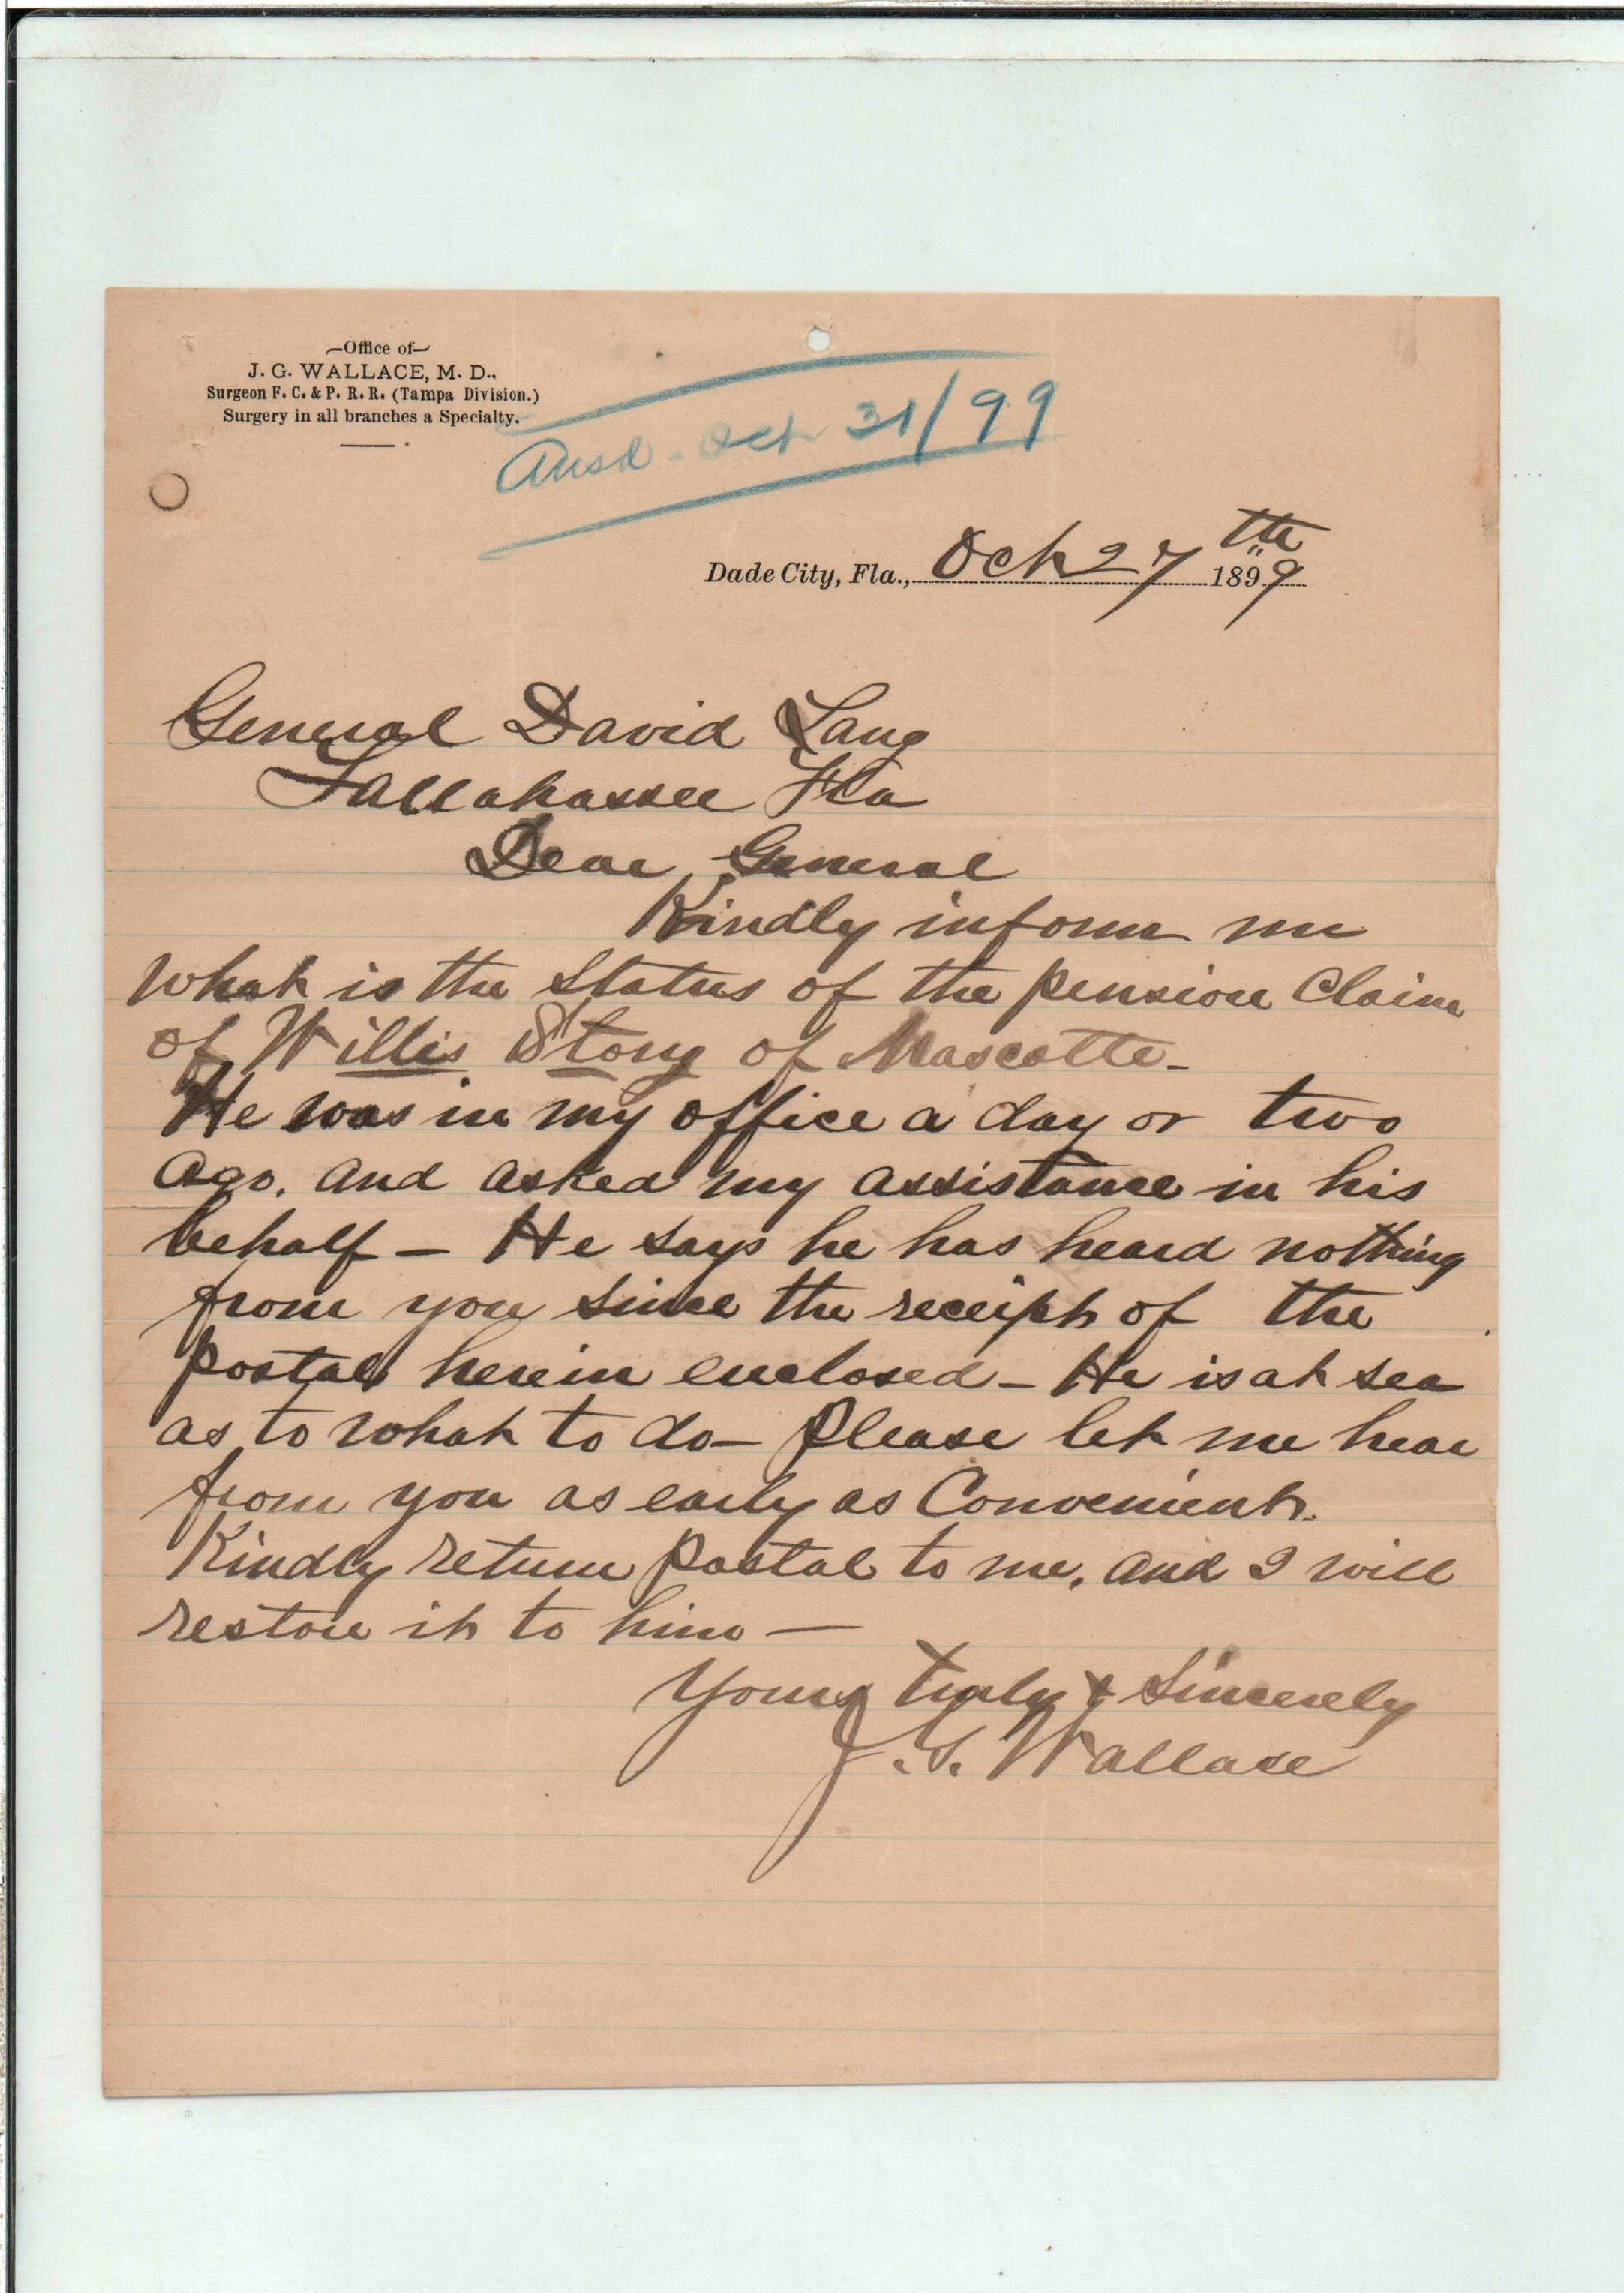 —Office of—
J. G. WALLACE, M. D..
Surgeon F. C. & P. R. R. (Tampa Division.)
Surgery in all branches a Specialty.
Ansd. Oct 31/99
Dade City, Fla., Oct 27th 1899
General David Lang
Tallahassee Fla
Dear General
Kindly inform me
what is the status of the pension Claim
of Willis Story of Mascotte-
He was in my office a day or two
ago. and asked my assistance in his
behalf - He says he has heard nothing
from you since the receipt of the
postal herein enclosed - He is at sea
as to what to do- Please let me hear
from you as early as Convenient.
Kindly return postal to me, and I will
restore it to him -
Yours truly & Sincerely
J. G. Wallace